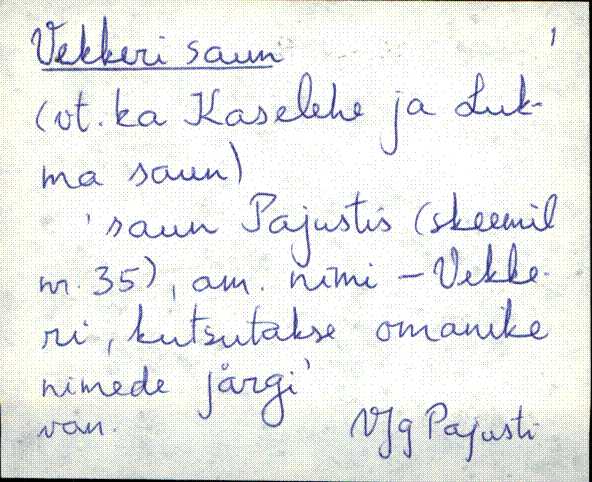 Vekkeri saun 1
(vt. ka Kaselehe ja Luk-
ma saun)
'saun Pajustis (skeemil
nr. 35), am. nimi – Vekke-
ri, kutsutakse omanike
nimede järgi'
van. VJg Pajusti